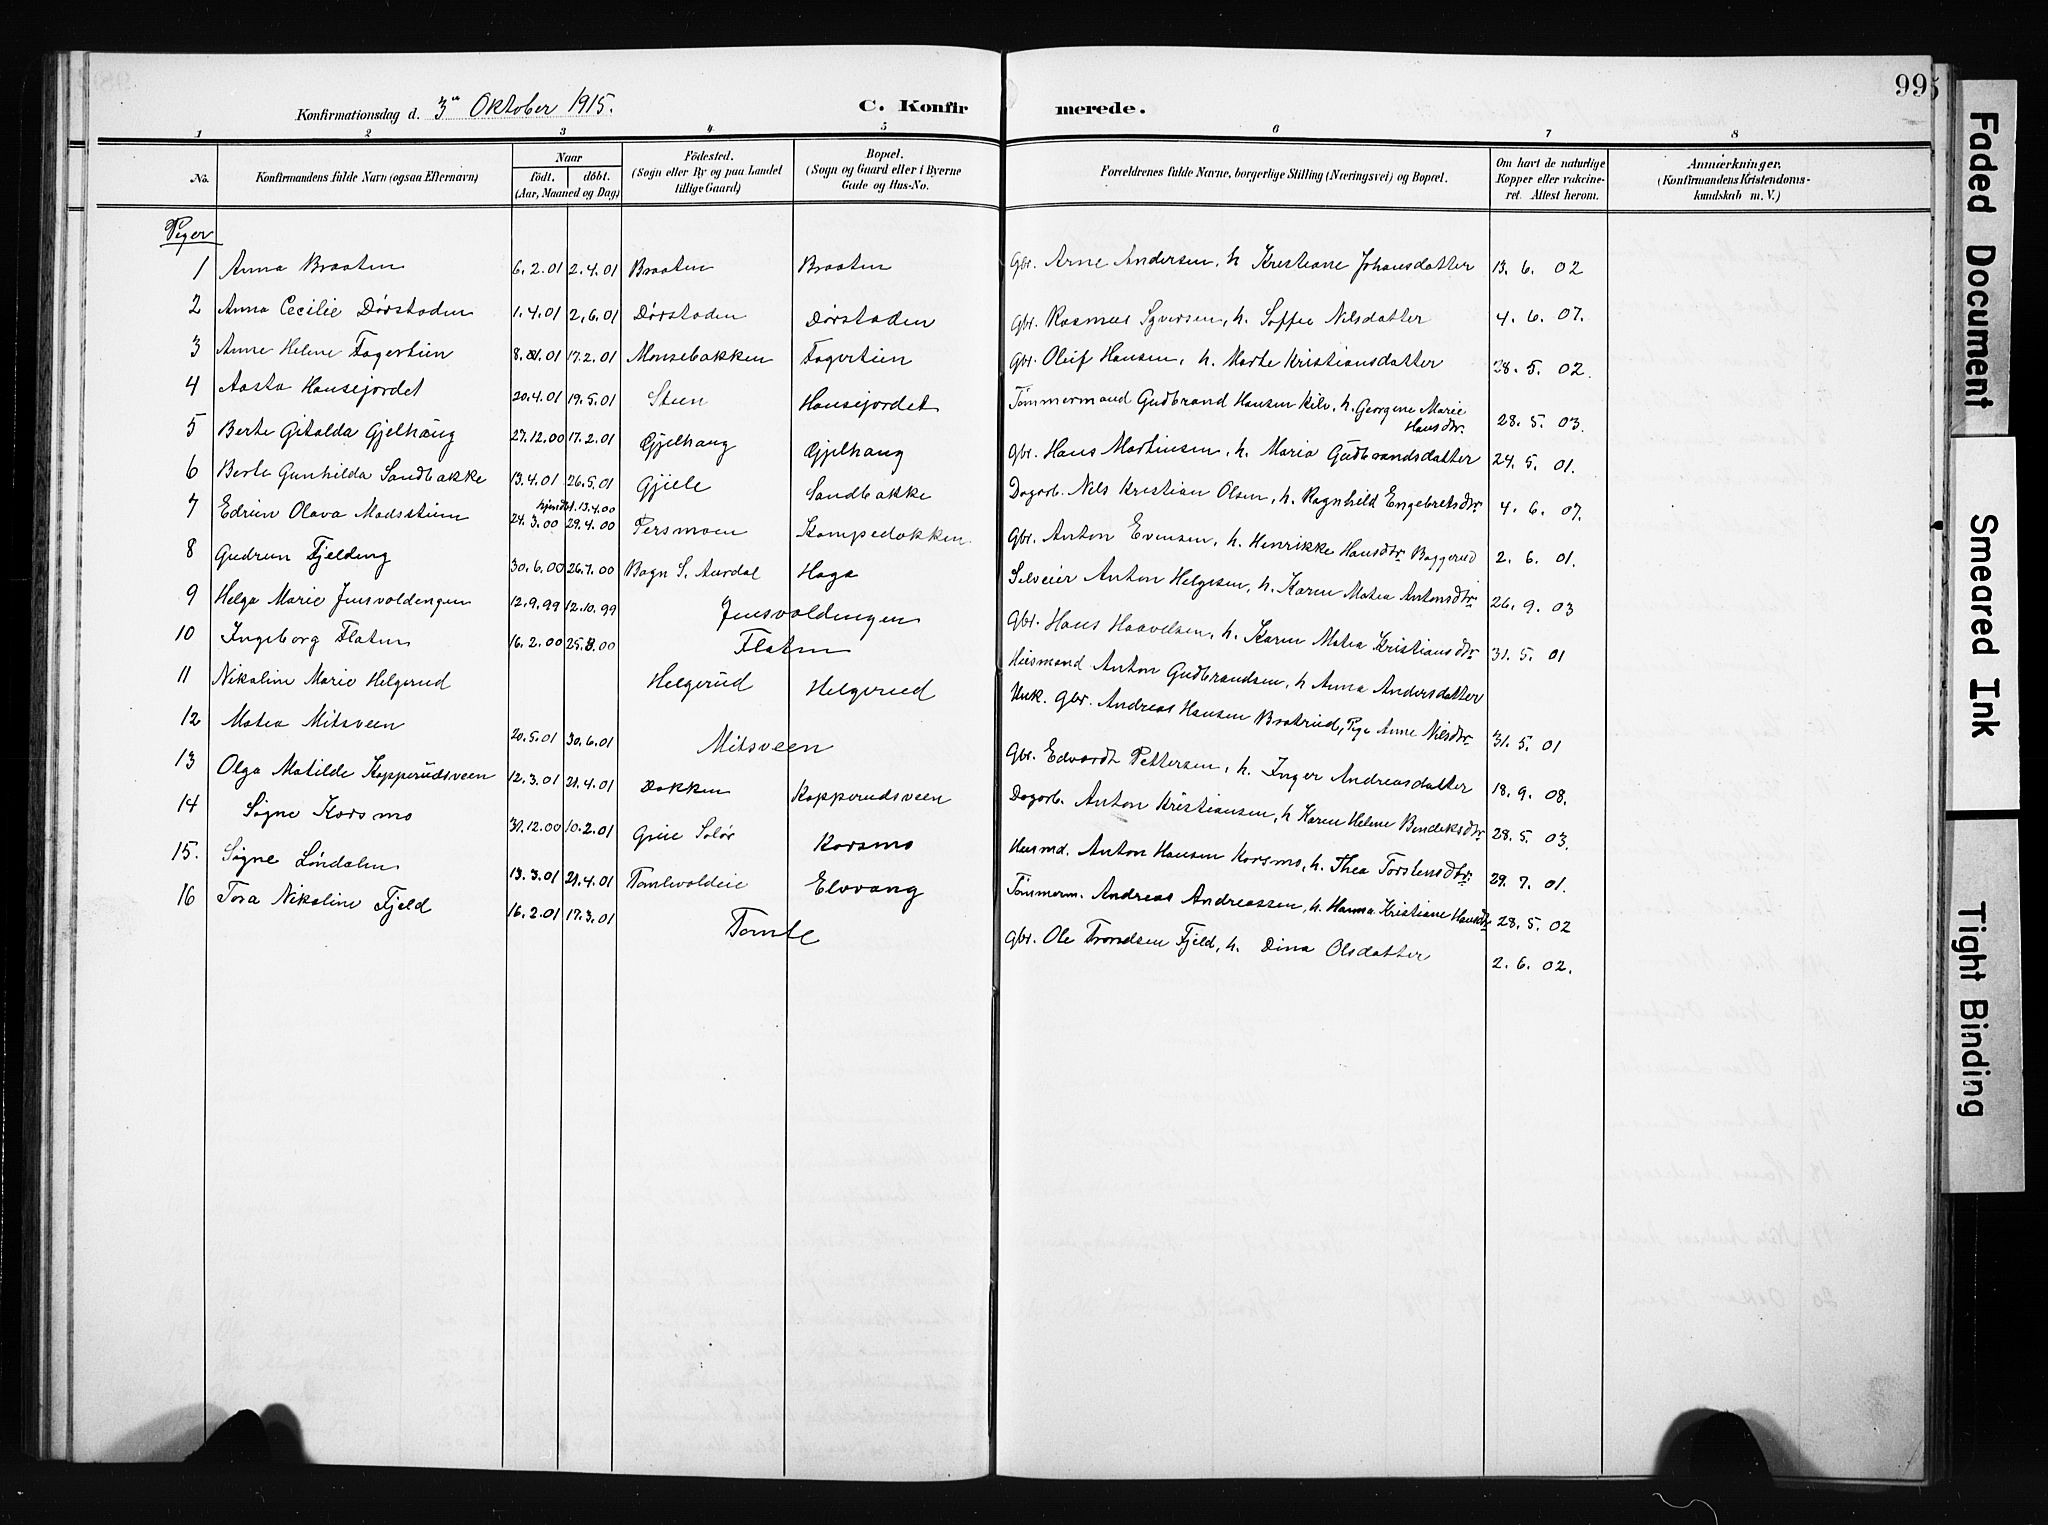 Konfirmationsdag d. 3die Oktober 1915. C. Konfir merede. 99
1 2 3 4 5 6 7 8
No. Konfirmandens fulde Navn (ogsaa Efternavn) Naar födt. döbt. (Aar, Maaned og Dag) Födested. (Sogn eller By og paa Landet tillige Gaard) Bopæl. (Sogn og Gaard eller i Byerne Gade og Hus-No. Forældrenes fulde Navne, borgerlige Stilling (Næringsvei) og Bopæl. Om havt de naturlige Kopper eller vakcineret. Attest herom. Anmærkninger. (Konfirmandens Kristendomskundskab m. V.)
Piger
1 Anna Braaten 6.2.01 2.4.01 Braaten Braaten Gbr. Arne Andersen, h. Kristiane Johansdatter 13. 6. 02
2 Anna Cecilie Dørstaden 1.4.01 2.6.01 Dørstaden Dørstaden Gbr. Rasmus Syversen, h. Soffie Nilsdatter 4. 6. 07.
3 Anne Helene Fagertien 17.2.01 Monsebakken Fagertien Gbr. Oluf Hansen, h. Marte Kristiansdatter 28. 5. 02.
4 Aasta Hansejordet 20.4.01 19.5.01 Steen Hansejordet Tømmermand Gudbrand Hansen Kilv, h. Georgene Marie Hansdtr. 28. 5. 03.
5 Berte Gitalda Gjelhaug 27.12.00 17.2.01 Gjelhaug Gjelhaug Gbr. Hans Martinsen, h. Maria Gudbrandsdatter 24. 5. 01.
6 Berte Gunhilda Sandbakke 13.4.01 26.5.01 Gjiele Sandbakke Dagarb. Nils Kristian Olsen, h. Ragnhild Engebretsdtr. 4. 6. 07.
7 Edrun Olava Madsstuen 24.3.00 hjemdbt. 13.4.00 29.4.00 Persmoen Kampedokken Gbr. Anton Evensen, h. Henrikke Hansdtr. Baggerud 2. 6. 01.
8 Gudrun Fjelding 30.6.00 26.7.00 Bagn S. Aurdal Haga Selveier Anton Helgesen, h. Karen Matea Antonsdtr. 26. 9. 03
9 Helga Marie Jensvoldengen 12.9.99 12.10.99 Jensvoldengen Gbr. Hans Haavelsen, h. Karen Matea Kristiansdtr. 31. 5. 01
10 Ingeborg Flaten 16.2.00 25.8.00 Flaten Husmand Anton Gudbrandsen, h. Anna Andersdatter
11 Nikoline Marie Helgerud Helgerud Helgerud Unk. Gbr. Andreas Hansen Bratrud, Pige Anne Nilsdtr. 31. 5. 01
12 Matea Mitsveen 20.5.01 30.6.01 Mitsveen Gbr. Edvardt Pettersen, h. Inger Andreasdatter 18. 9. 08.
13 Olga Matilde Kopperudsveen 12.3.01 21.4.01 Dokken Kopperudsveen Dagarb. Anton Kristiansen, h. Karen Helene Bendiksdtr. 28. 5. 03.
14 Signe Korsmo 31.12.00 10.2.01 Grue Solør Korsmo Husmd. Anton Hansen Korsmo, h. Thea Torstensdtr. 29. 7. 01.
15. Signe Løndalen 13.3.01 21.4.01 Tomlevoldeie Elvvang Tømmerm. Andreas Andreassen, h. Hanna Kristiane Hansdtr. 28. 5. 02
16 Tora Nikoline Fjeld 16.2.01 17.3.01 Tomle Gbr. Ole Trondsen Fjeld, h. Dina Olsdatter 2. 6. 02.
Faded Document
Smeared Ink
Tight Binding